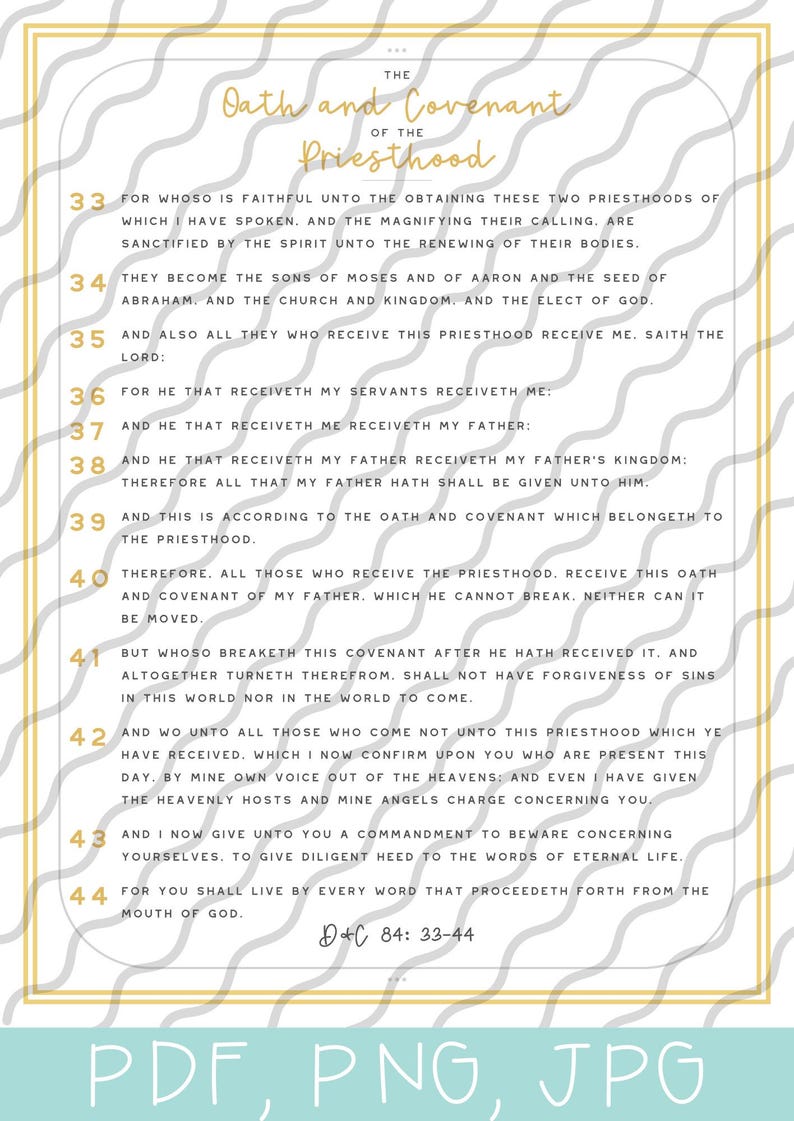 THE
Oath and Covenant
OF THE
Priesthood
33 FOR WHOSO IS FAITHFUL UNTO THE OBTAINING THESE TWO PRIESTHOODS OF
WHICH I HAVE SPOKEN, AND THE MAGNIFYING THEIR CALLING, ARE
SANCTIFIED BY THE SPIRIT UNTO THE RENEWING OF THEIR BODIES.
34 THEY BECOME THE SONS OF MOSES AND OF AARON AND THE SEED OF
ABRAHAM, AND THE CHURCH AND KINGDOM, AND THE ELECT OF GOD.
35 AND ALSO ALL THEY WHO RECEIVE THIS PRIESTHOOD RECEIVE ME, SAITH THE
LORD;
36 FOR HE THAT RECEIVETH MY SERVANTS RECEIVETH ME;
37 AND HE THAT RECEIVETH ME RECEIVETH MY FATHER;
38 AND HE THAT RECEIVETH MY FATHER RECEIVETH MY FATHER'S KINGDOM;
THEREFORE ALL THAT MY FATHER HATH SHALL BE GIVEN UNTO HIM.
39 AND THIS IS ACCORDING TO THE OATH AND COVENANT WHICH BELONGETH TO
THE PRIESTHOOD.
40 THEREFORE, ALL THOSE WHO RECEIVE THE PRIESTHOOD, RECEIVE THIS OATH
AND COVENANT OF MY FATHER, WHICH HE CANNOT BREAK, NEITHER CAN IT
BE MOVED.
41 BUT WHOSO BREAKETH THIS COVENANT AFTER HE HATH RECEIVED IT, AND
ALTOGETHER TURNETH THEREFROM, SHALL NOT HAVE FORGIVENESS OF SINS
IN THIS WORLD NOR IN THE WORLD TO COME.
42 AND WO UNTO ALL THOSE WHO COME NOT UNTO THIS PRIESTHOOD WHICH YE
HAVE RECEIVED, WHICH I NOW CONFIRM UPON YOU WHO ARE PRESENT THIS
DAY, BY MINE OWN VOICE OUT OF THE HEAVENS; AND EVEN I HAVE GIVEN
THE HEAVENLY HOSTS AND MINE ANGELS CHARGE CONCERNING YOU.
43 AND I NOW GIVE UNTO YOU A COMMANDMENT TO BEWARE CONCERNING
YOURSELVES, TO GIVE DILIGENT HEED TO THE WORDS OF ETERNAL LIFE.
44 FOR YOU SHALL LIVE BY EVERY WORD THAT PROCEEDETH FORTH FROM THE
MOUTH OF GOD.
D+C 84: 33-44
PDF, PNG, JPG